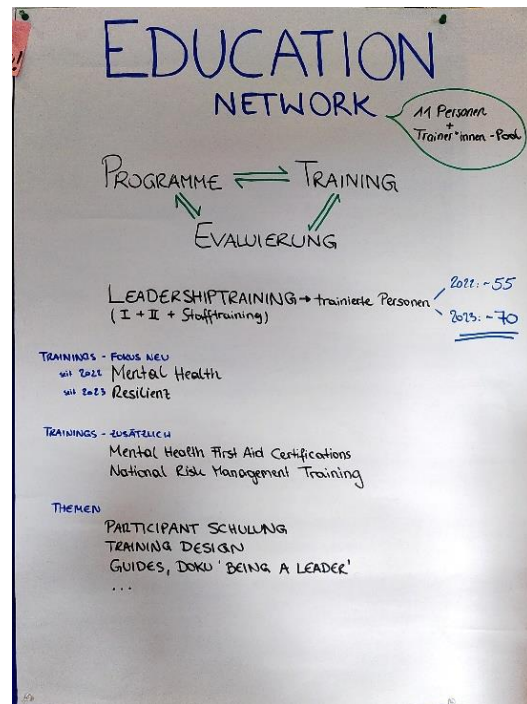 EDUCATION
NETWORK
11 Personen
+
Trainer*innen-Pool
PROGRAMME
TRAINING
EVALUIERUNG
LEADERSHIPTRAINING → trainierte Personen
(I + II + Stafftraining)
2022: ~55
2023: ~70
TRAININGS - FOKUS NEU
seit 2022 Mental Health
seit 2023 Resilienz
TRAININGS - ZUSÄTZLICH
Mental Health First Aid Certifications
National Risk Management Training
THEMEN
PARTICIPANT SCHULUNG
TRAINING DESIGN
GUIDES, DOKU 'BEING A LEADER'
...